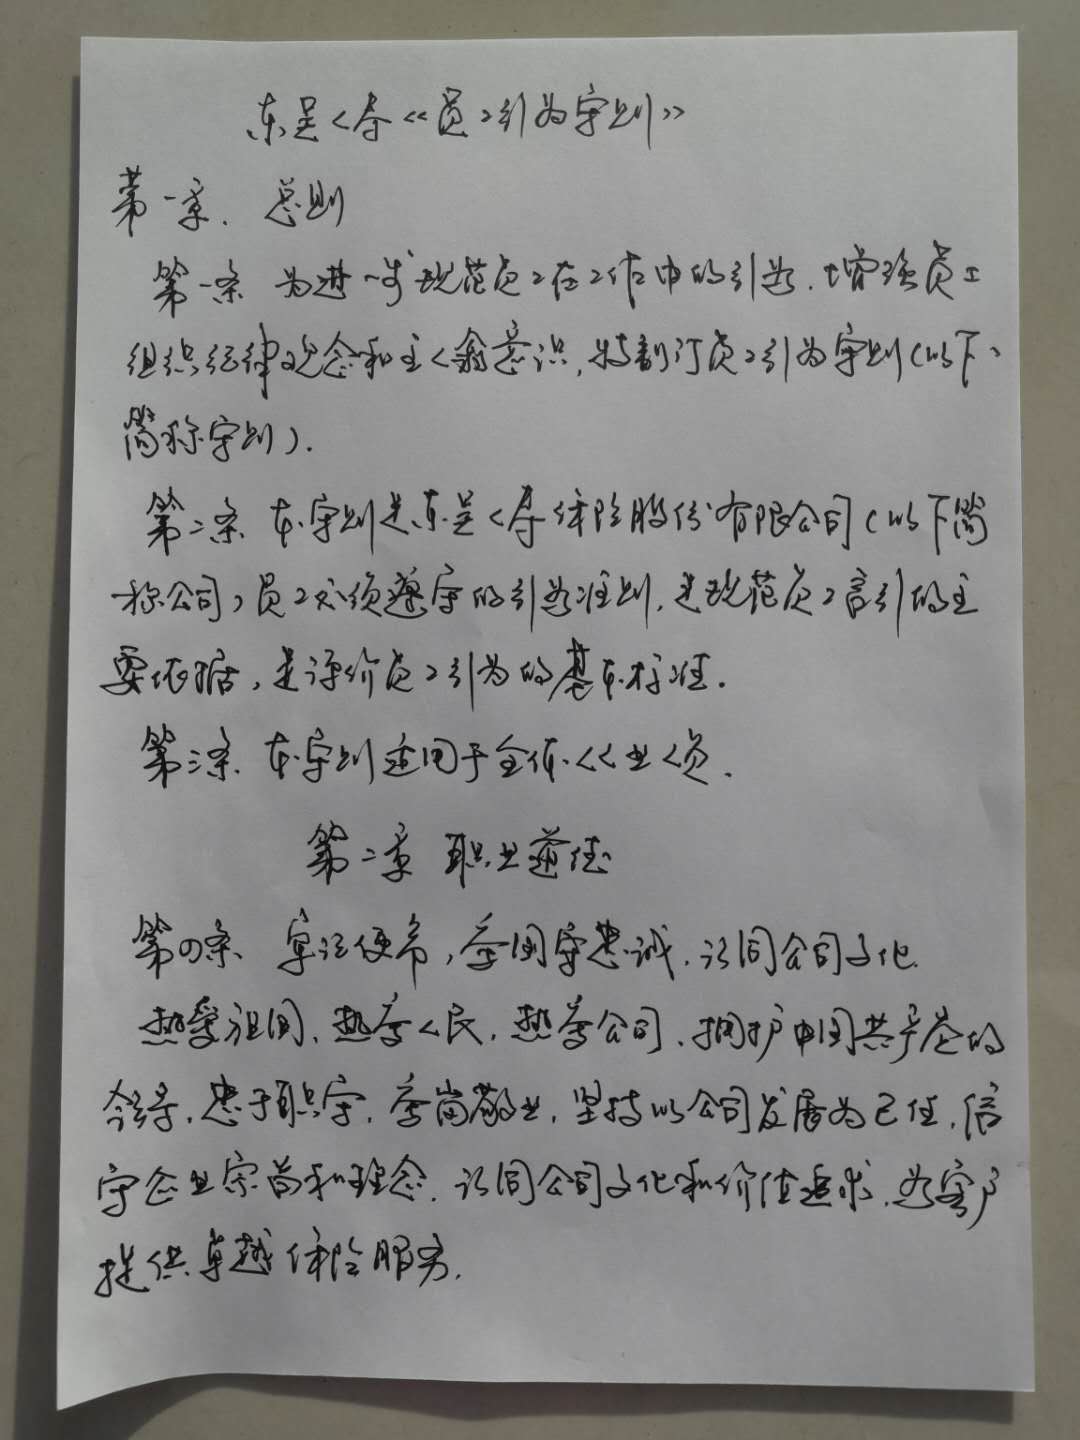 东吴人寿《员工行为守则》
第一章. 总则
第一条 为进一步规范员工在工作中的行为,增强员工
组织纪律观念和主人翁意识,特制订员工行为守则(以下
简称守则).
第二条 本守则是东吴人寿保险股份有限公司(以下简
称公司)员工必须遵守的行为准则,是规范员工言行的主
要依据,是评价员工行为的基本标准.
第三条 本守则适用于全体从业人员.
第二章 职业道德
第四条 守法使命,爱国守忠诚,认同公司文化
热爱祖国,热爱人民,热爱公司,拥护中国共产党的
领导,忠于职守,爱岗敬业,坚持以公司发展为己任,信
守企业宗旨和理念,认同公司文化和价值追求,为客户
提供卓越保险服务.